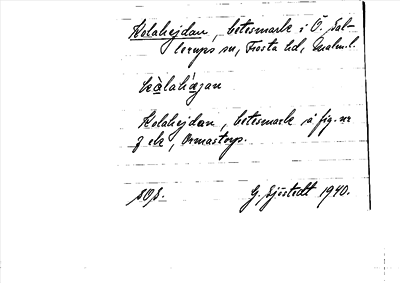 Kolahejdan, betesmark i Ö. Sal-
lerups sn, Frosta hd, Malm.l.
kòlahàjan
Kolahejdan, betesmark å fig. nr
7 ek, Ormastorp.
G. Sjöstedt 1940.